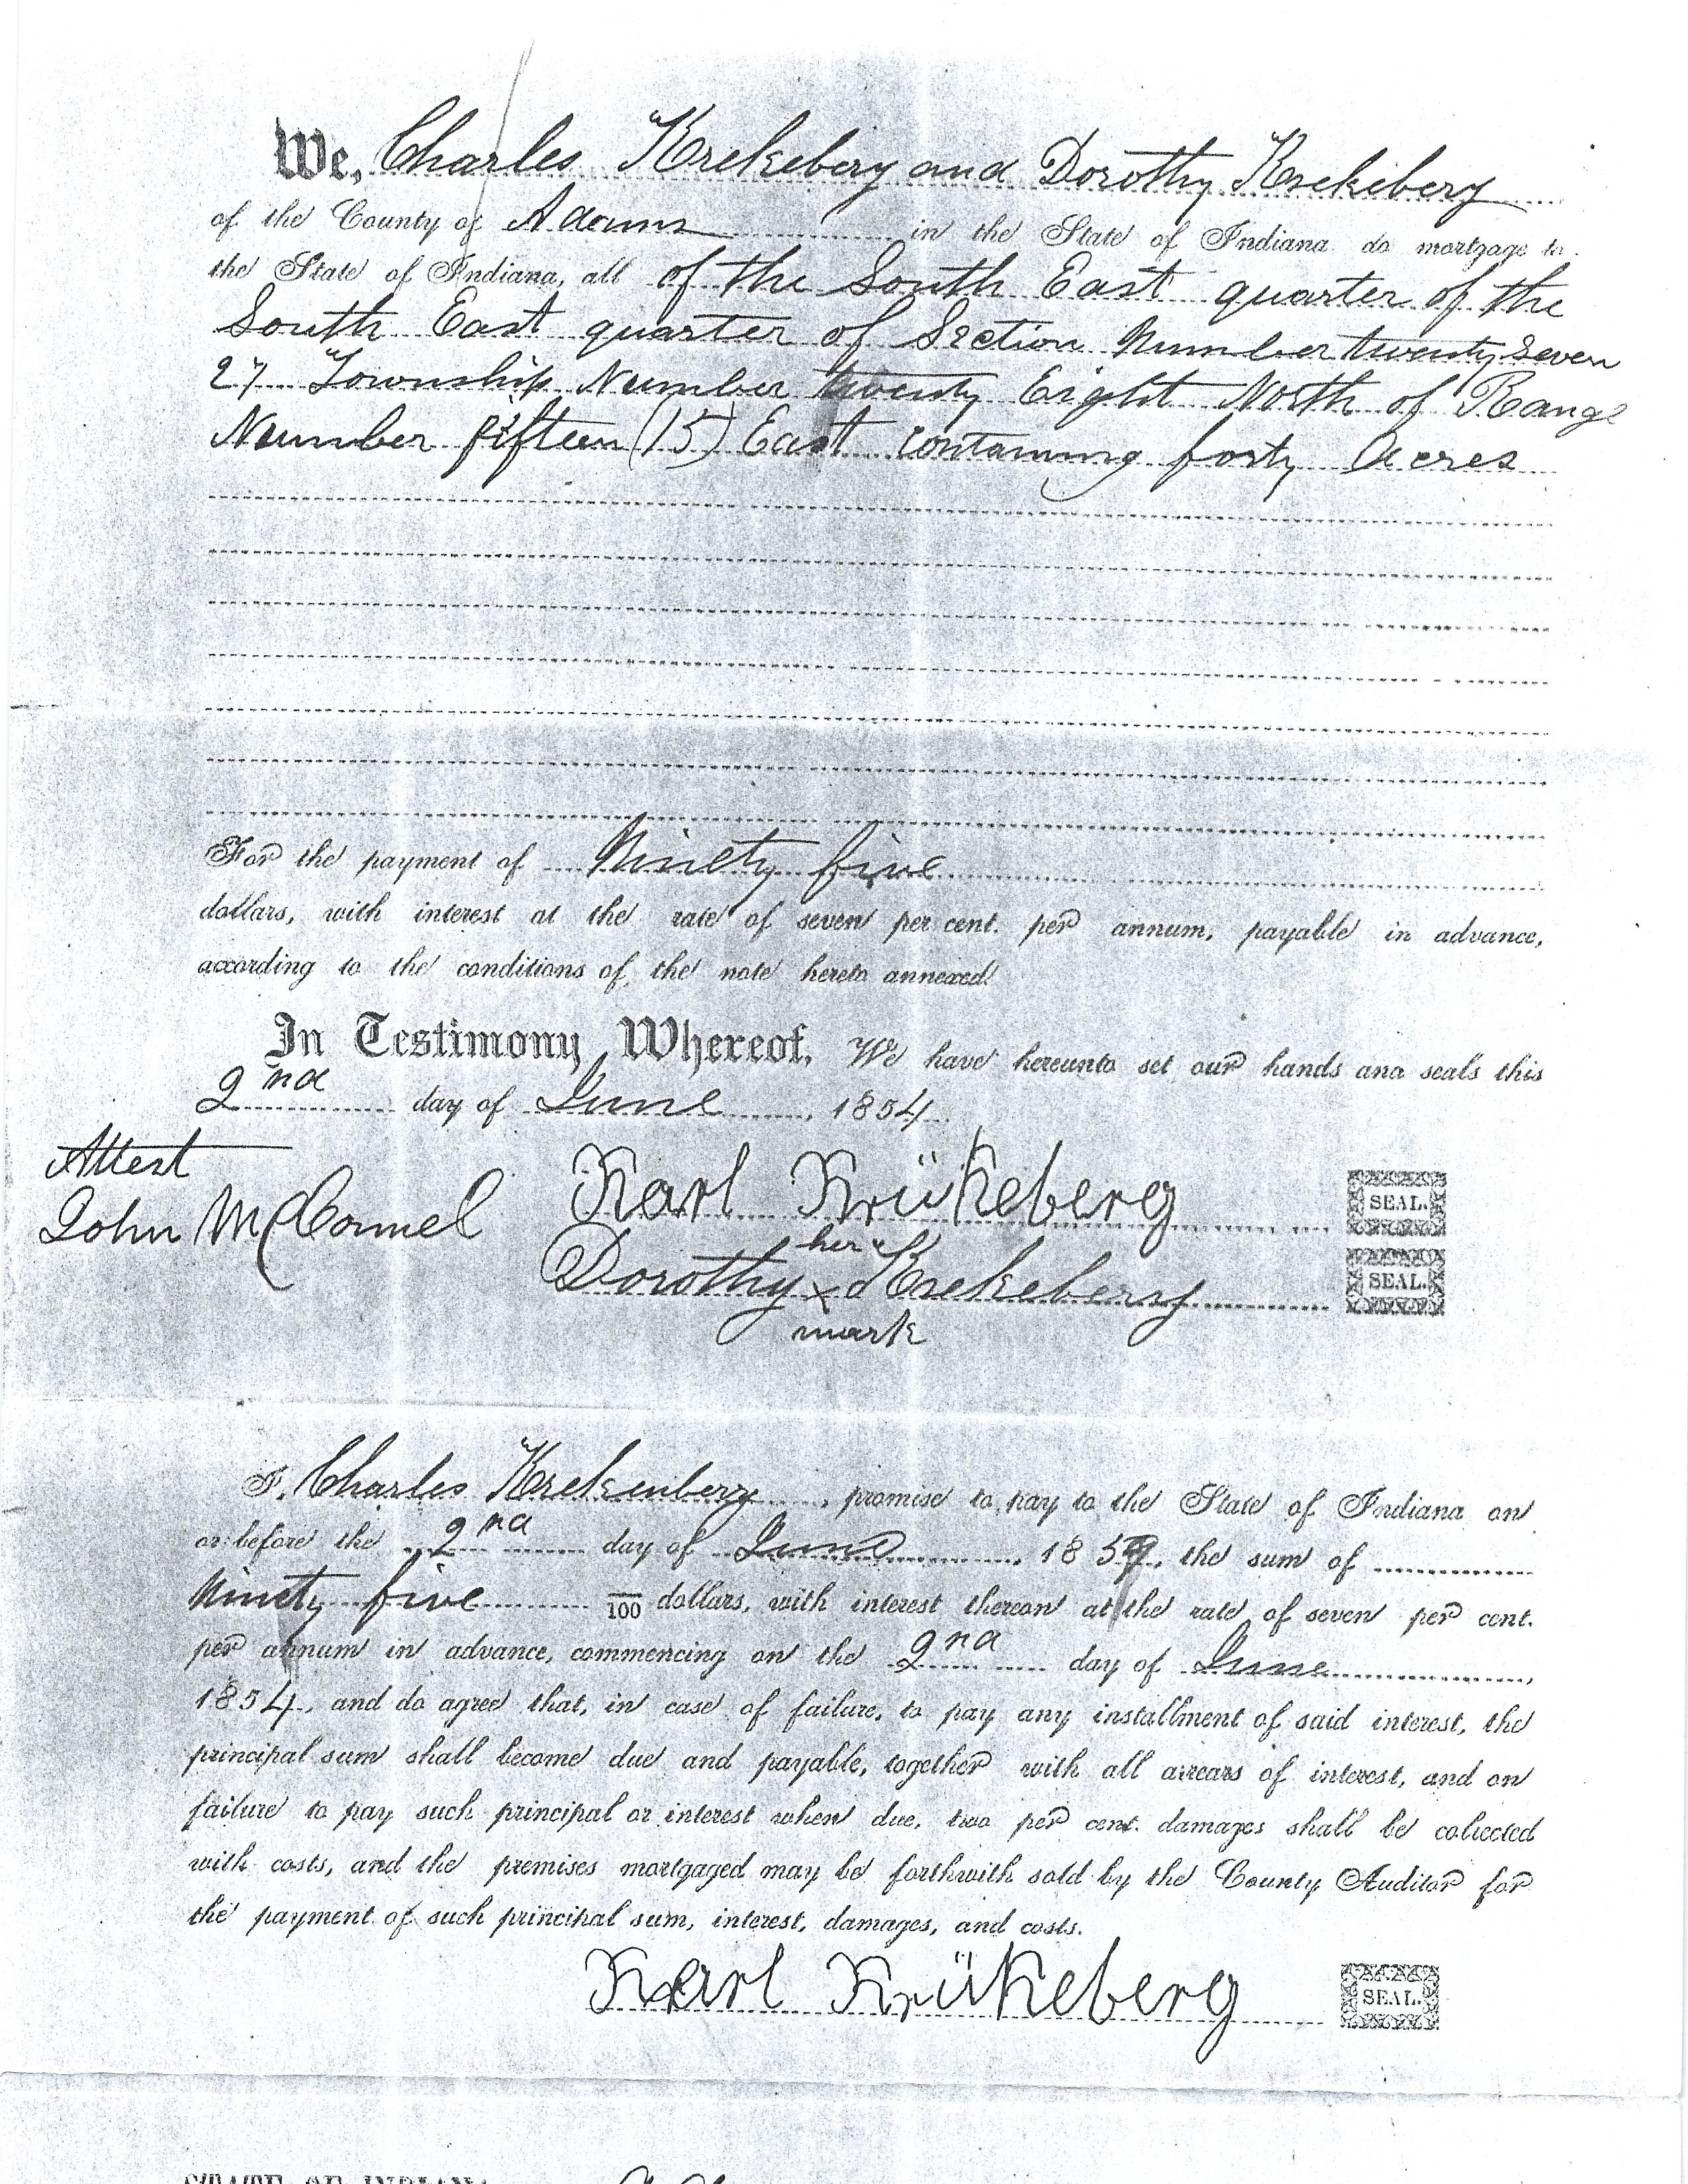 We, Charles Krekeberg and Dorothy Krekeberg
of the County of Adams in the State of Indiana do mortgage to
the State of Indiana, all of the South East quarter of the
South East quarter of Section Number twenty seven
27 Township Number twenty Eight North of Range
Number fifteen (15) East containing forty Acres
For the payment of Ninety five
dollars, with interest at the rate of seven per cent. per annum, payable in advance,
according to the conditions of the note hereto annexed.
In Testimony Whereof, We have hereunto set our hands and seals this
2nd day of June, 1854
Attest
John McConnel
Karl Krükeberg SEAL.
her
Dorothy x Krekeberg SEAL.
mark
I, Charles Krekenberg, promise to pay to the State of Indiana on
or before the 2nd day of June, 1859, the sum of
Ninety five /100 dollars, with interest thereon at the rate of seven per cent.
per annum in advance, commencing on the 2nd day of June,
1854, and do agree that, in case of failure, to pay any installment of said interest, the
principal sum shall become due and payable, together with all arrears of interest, and on
failure to pay such principal or interest when due, two per cent. damages shall be collected
with costs, and the premises mortgaged may be forthwith sold by the County Auditor for
the payment of such principal sum, interest, damages, and costs.
Karl Krükeberg SEAL.
STATE OF INDIANA